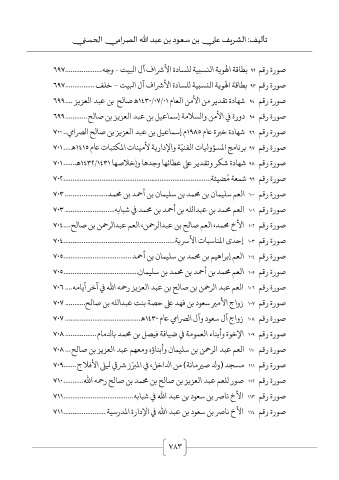 تأليف: الشريف علي بن سعود بن عبد الله الصرامي الحسني
صورة رقم ٩٢ بطاقة الهوية النسبية للسادة الأشراف آل البيت - وجه..................٦٩٧
صورة رقم ٩٣ بطاقة الهوية النسبية للسادة الأشراف آل البيت - خلف..............٦٩٧
صورة رقم ٩٤ شهادة تقدير من الأمن العام ١٤٣٠/٠٧/٠١هـ صالح بن عبد العزيز ....٦٩٩
صورة رقم ٩٥ دورة في الأمن والسلامة إسماعيل بن عبد العزيز بن صالح............٦٩٩
صورة رقم ٩٦ شهادة خبرة عام ١٩٨٥م إسماعيل بن عبد العزيز بن صالح الصرامي..٧٠٠
صورة رقم ٩٧ برنامج المسؤوليات الفنيّة والإدارية لأمينات المكتبات عام ١٤١٥هـ....٧٠١
صورة رقم ٩٨ شهادة شكر وتقدير على عطائها وجدها وإخلاصها ١٤٣٢/١٤٣١هـ......٧٠١
صورة رقم ٩٩ شمعة مُضيئة..................................................٧٠٢
صورة رقم ١٠٠ العم سليمان بن محمد بن سليمان بن أحمد بن محمد....................٧٠٣
صورة رقم ١٠١ العم محمد بن عبدالله بن أحمد بن محمد في شبابه......................٧٠٣
صورة رقم ١٠٢ الأخ محمد، العم صالح بن عبدالرحمن، العم عبدالرحمن بن صالح....٧٠٤
صورة رقم ١٠٣ إحدى المناسبات الأسرية..........................................٧٠٤
صورة رقم ١٠٤ العم إبراهيم بن محمد بن سليمان بن أحمد............................٧٠٥
صورة رقم ١٠٥ العم محمد بن أحمد بن محمد بن سليمان..............................٧٠٥
صورة رقم ١٠٦ العم عبد الرحمن بن صالح بن عبد العزيز رحمه الله في آخر أيامه....٧٠٦
صورة رقم ١٠٧ زواج الأمير سعود بن فهد على حصة بنت عبدالله بن صالح..........٧٠٧
صورة رقم ١٠٨ زواج آل سعود وآل الصرامي عام ١٤٣٠هـ..........................٧٠٧
صورة رقم ١٠٩ الإخوة وأبناء العمومة في ضيافة فيصل بن محمد بالدمام................٧٠٨
صورة رقم ١١٠ العم عبد الرحمن بن سليمان وأبناؤه ومعهم عبد العزيز بن صالح...٧٠٨
صورة رقم ١١١ مسجد (ولد صيرمانة) من الداخل، في المبرّز شرقي ليلى الأفلاج.......٧٠٩
صورة رقم ١١٢ صور للعم عبد العزيز بن صالح بن محمد بن صالح رحمه الله..........٧١٠
صورة رقم ١١٣ الأخ ناصر بن سعود بن عبد الله في شبابه............................٧١١
صورة رقم ١١٤ الأخ ناصر بن سعود بن عبد الله في الإدارة المدرسية....................٧١١
٧٨٣